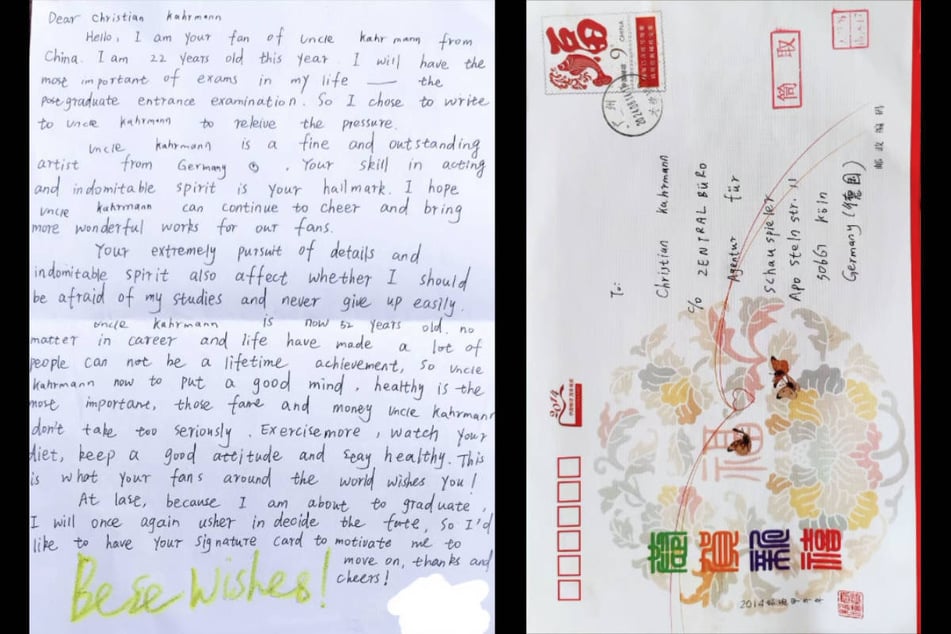 Dear christian kahrmann
Hello, I am your fan of uncle kahrmann from
China. I am 22 years old this year. I will have the
most important of exams in my life —— the
postgraduate entrance examination. So I chose to write
to uncle kahrmann to releive the pressure.
uncle kahrmann is a fine and outstanding
artist from Germany. Your skill in acting
and indomitable spirit is your hallmark. I hope
uncle kahrmann can continue to cheer and bring
more wonderful works for our fans.
Your extremely pursuit of details and
indomitable spirit also affect whether I should
be afraid of my studies and never give up easily.
uncle kahrmann is now 52 years old. no
matter in career and life have made a lot of
people can not be a lifetime achievement, So uncle
kahrmann now to put a good mind, healthy is the
most important, those fame and money uncle kahrmann
don't take too seriously. Exercise more, watch your
diet, keep a good attitude and stay healthy. This
is what your fans around the world wishes you!
At lase, because I am about to graduate,
I will once again usher in decide the fate, So I'd
like to have your signature card to motivate me to
move on, thanks and
cheers!
Bese wishes!
福
9
中国 CHINA
筒取
邮政编码
To:
Christian kahrmann
c/o ZENTRALBÜRO
Agentur für
Schauspieler
Apostelnstr. 11
50667 Köln
Germany (德国)
2014
福
恭贺新禧
2014